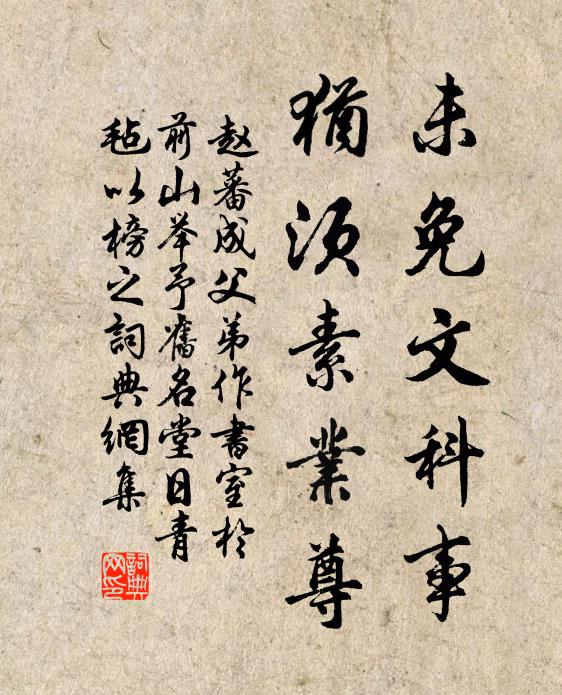 未免文科事
猶須素業尊
赵蕃成父弟作書室於
前山举予舊名堂曰青
毡以榜之詞典網集
詞典网印